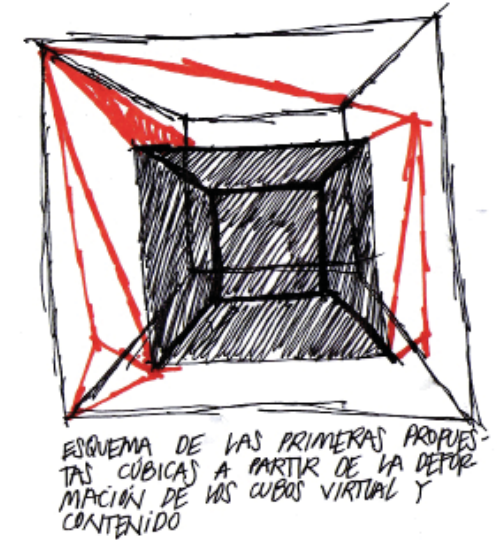 ESQUEMA DE LAS PRIMERAS PROPUES-
TAS CÚBICAS A PARTIR DE LA DEFOR-
MACIÓN DE LOS CUBOS VIRTUAL Y
CONTENIDO